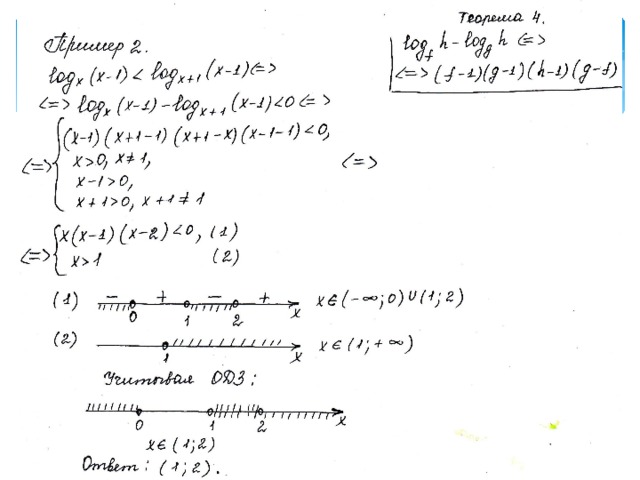 Теорема 4.
log_f h - log_g h <=>
<=> (f-1)(g-1)(h-1)(g-f)
Пример 2.
log_x (x-1) < log_{x+1} (x-1) <=>
<=> log_x (x-1) - log_{x+1} (x-1) < 0 <=>
<=> { (x-1)(x+1-1)(x+1-x)(x-1-1) < 0,
x>0, x≠1, <=>
x-1>0,
x+1>0, x+1≠1
<=> { x(x-1)(x-2) < 0, (1)
x>1 (2)
(1) - + - + x∈(-∞;0)∪(1;2)
0 1 2 x
(2) x∈(1;+∞)
1 x
Учитывая ОДЗ:
0 1 2 x
x∈(1;2)
Ответ: (1;2).